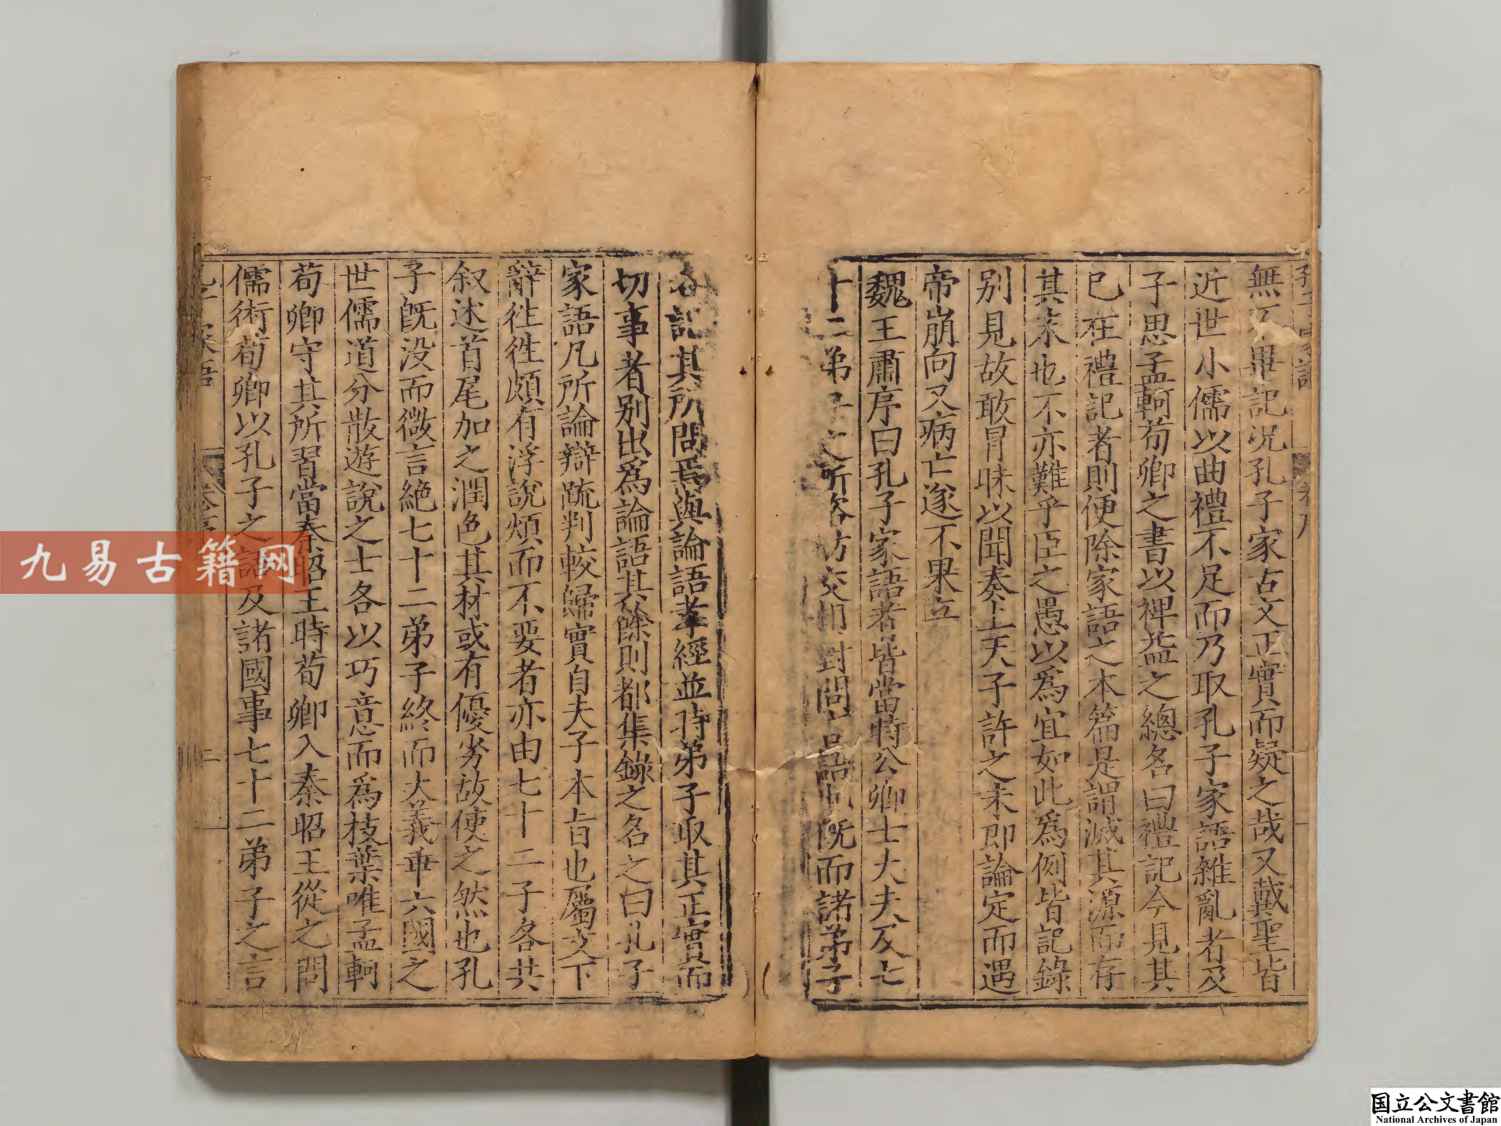 孔子家語 卷序
無不畢記況孔子家古文正實而疑之哉又戴聖皆
近世小儒以曲禮不足而乃取孔子家語雜亂者及
子思孟軻荀卿之書以裨益之總名曰禮記今見其
已在禮記者則便除家語之本篇是謂滅其源而存
其末也不亦難乎臣之愚以爲宜如此爲例皆記錄
別見故敢冒昧以聞奏上天子許之未即論定而遇
帝崩向又病亡遂不果立
魏王肅序曰孔子家語者皆當時公卿士大夫及七
十二弟子之所咨訪交相對問言語也既而諸弟子
各記其所問焉與論語孝經並時弟子取其正實而
切事者別出爲論語其餘則都集錄之名之曰孔子
家語凡所論辯䟽判較歸實自夫子本旨也屬文下
辭徃徃頗有浮說煩而不要者亦由七十二子各共
叙述首尾加之潤色其材或有優劣故使之然也孔
子旣没而微言絶七十二弟子終而大義乖六國之
世儒道分散遊說之士各以巧意而爲枝葉唯孟軻
荀卿守其所習當秦昭王時荀卿入秦昭王從之問
儒術荀卿以孔子之語及諸國事七十二弟子之言
九易古籍网
国立公文書館
National Archives of Japan